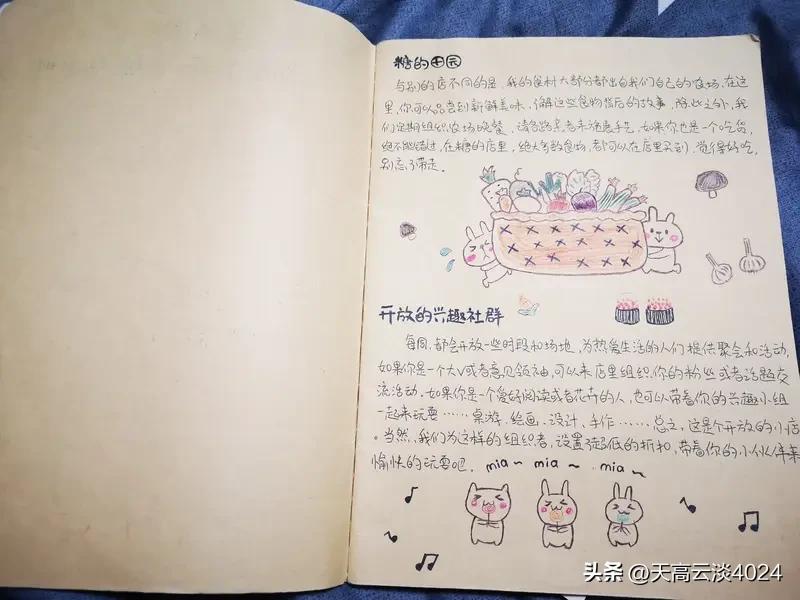 糖的田园
与别的店不同的是,我的食材大部分都出自我们自己的农场,在这
里,你可以品尝到新鲜美味,了解这些食物背后的故事,除此之外,我
们定期组织农场晚餐,请各路亲者来施展手艺,如果你也是一个吃货,
绝不能错过,在糖的店里,绝大多数食物,都可以在店里买到,觉得好吃,
别忘了带走。
开放的兴趣社群
每周,都会开放一些时段和场地,为热爱生活的人们提供聚会和活动,
如果你是一个大V或者意见领袖,可以来店里组织你的粉丝或者话题交
流活动,如果你是一个爱好阅读或者花卉的人,也可以带着你的兴趣小组
一起来玩耍……桌游、绘画、设计、手作……总之,这是个开放的小店
。当然,我们为这样的组织者,设置了超低的折扣,带着你的小伙伴来
愉快的玩耍吧。mia~ mia~ mia~
头条 @天高云淡4024